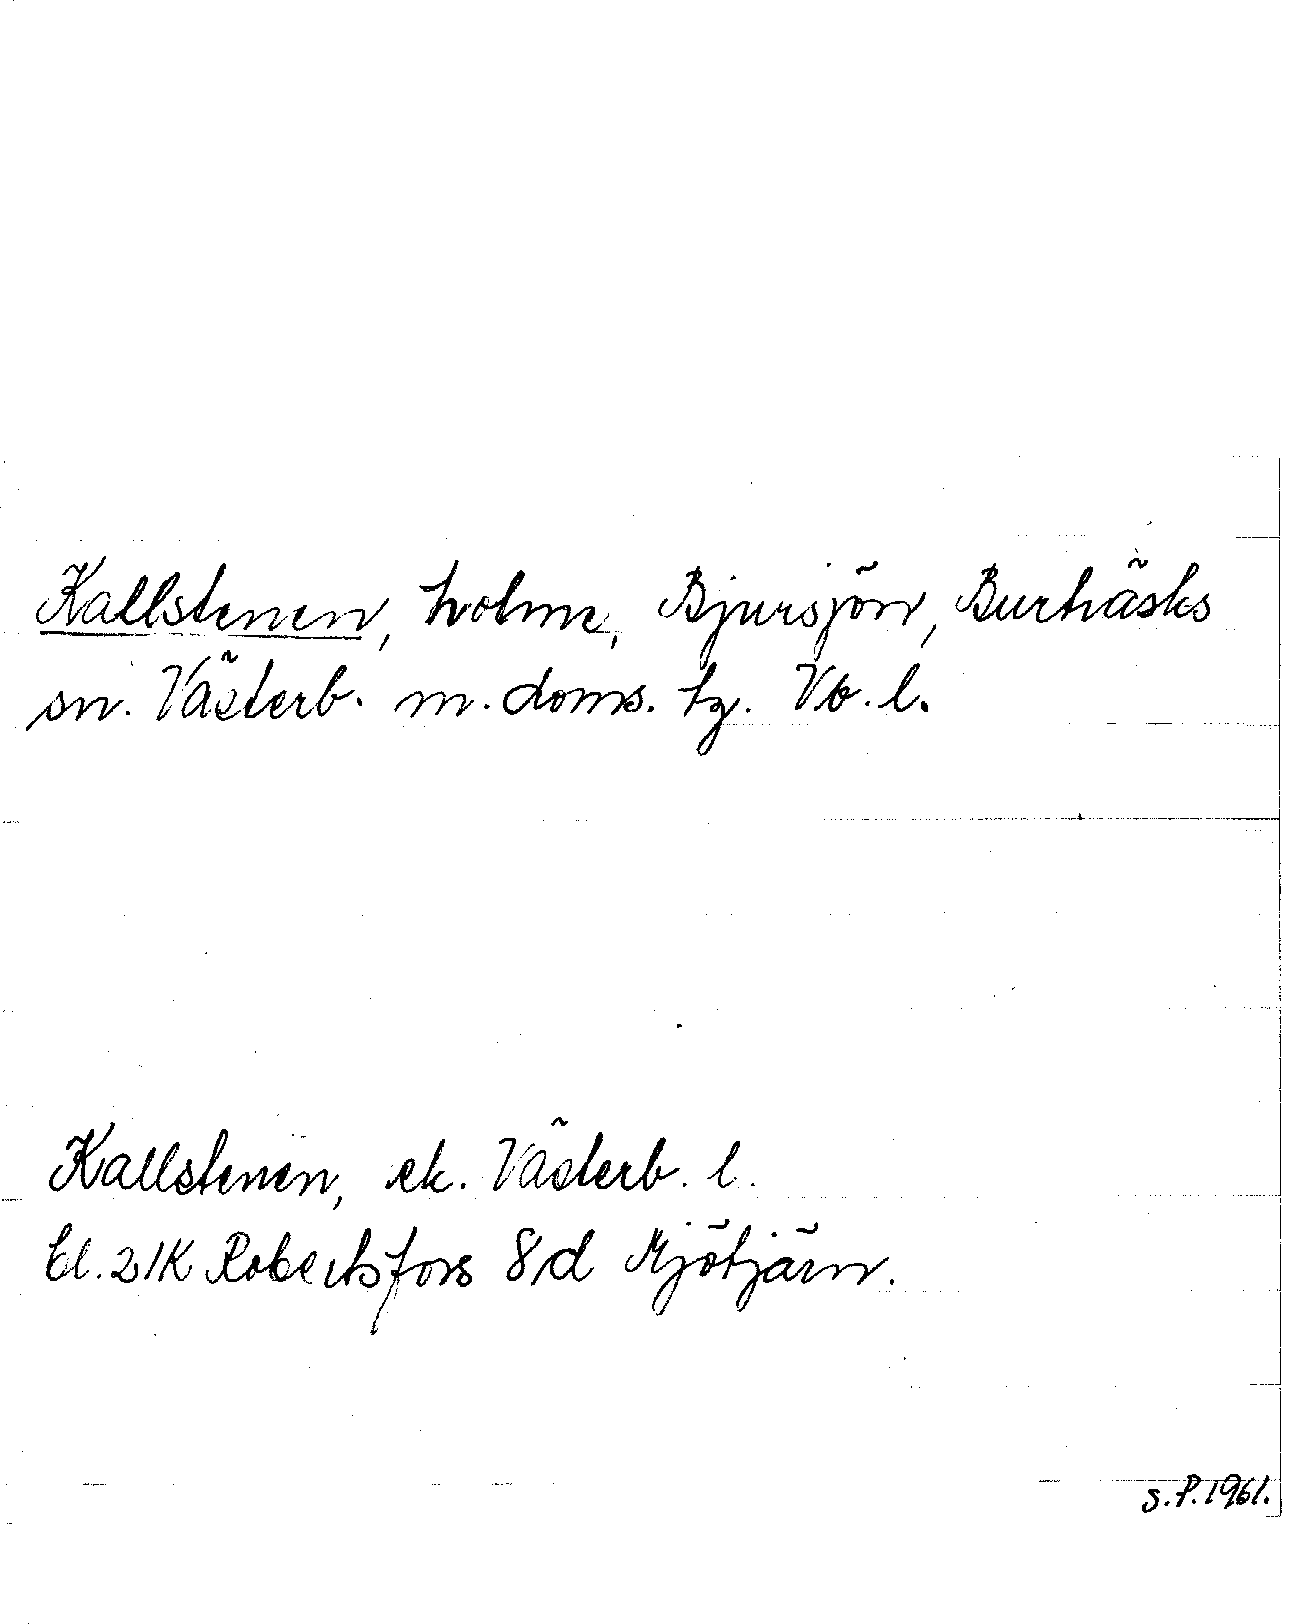 Kallstenen, holme, Bjursjön, Burträsks
sn. Västerb. m. doms. tg. Vb. l.
Kallstenen, ek. Västerb. l.
bl. 21K Robertsfors 8d Mjötjärn.
S.P. 1961.